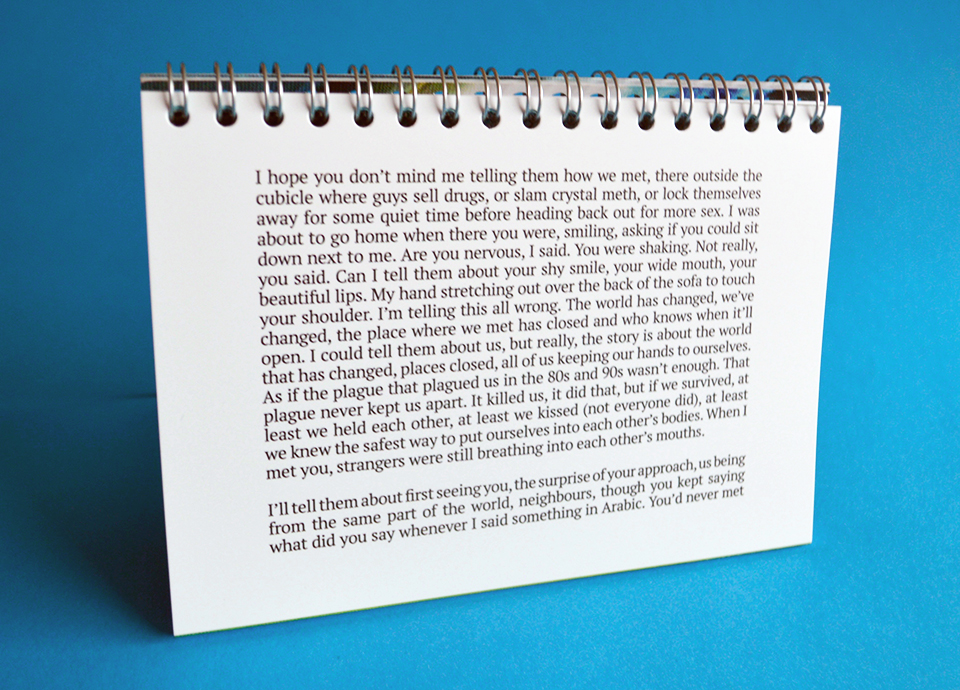 I hope you don't mind me telling them how we met, there outside the
cubicle where guys sell drugs, or slam crystal meth, or lock themselves
away for some quiet time before heading back out for more sex. I was
about to go home when there you were, smiling, asking if you could sit
down next to me. Are you nervous, I said. You were shaking. Not really,
you said. Can I tell them about your shy smile, your wide mouth, your
beautiful lips. My hand stretching out over the back of the sofa to touch
your shoulder. I'm telling this all wrong. The world has changed, we've
changed, the place where we met has closed and who knows when it'll
open. I could tell them about us, but really, the story is about the world
that has changed, places closed, all of us keeping our hands to ourselves.
As if the plague that plagued us in the 80s and 90s wasn't enough. That
plague never kept us apart. It killed us, it did that, but if we survived, at
least we held each other, at least we kissed (not everyone did), at least
we knew the safest way to put ourselves into each other's bodies. When I
met you, strangers were still breathing into each other's mouths.
I'll tell them about first seeing you, the surprise of your approach, us being
from the same part of the world, neighbours, though you kept saying
what did you say whenever I said something in Arabic. You'd never met